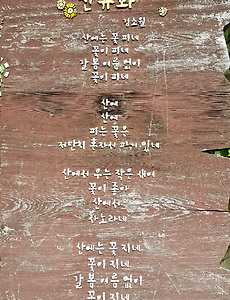 산유화
김소월
산에는 꽃 피네
꽃이 피네
갈 봄 여름 없이
꽃이 피네
산에
산에
피는 꽃은
저만치 혼자서 피어 있네
산에서 우는 작은 새여
꽃이 좋아
산에서
사노라네
산에는 꽃 지네
꽃이 지네
갈 봄 여름 없이
꽃이 지네